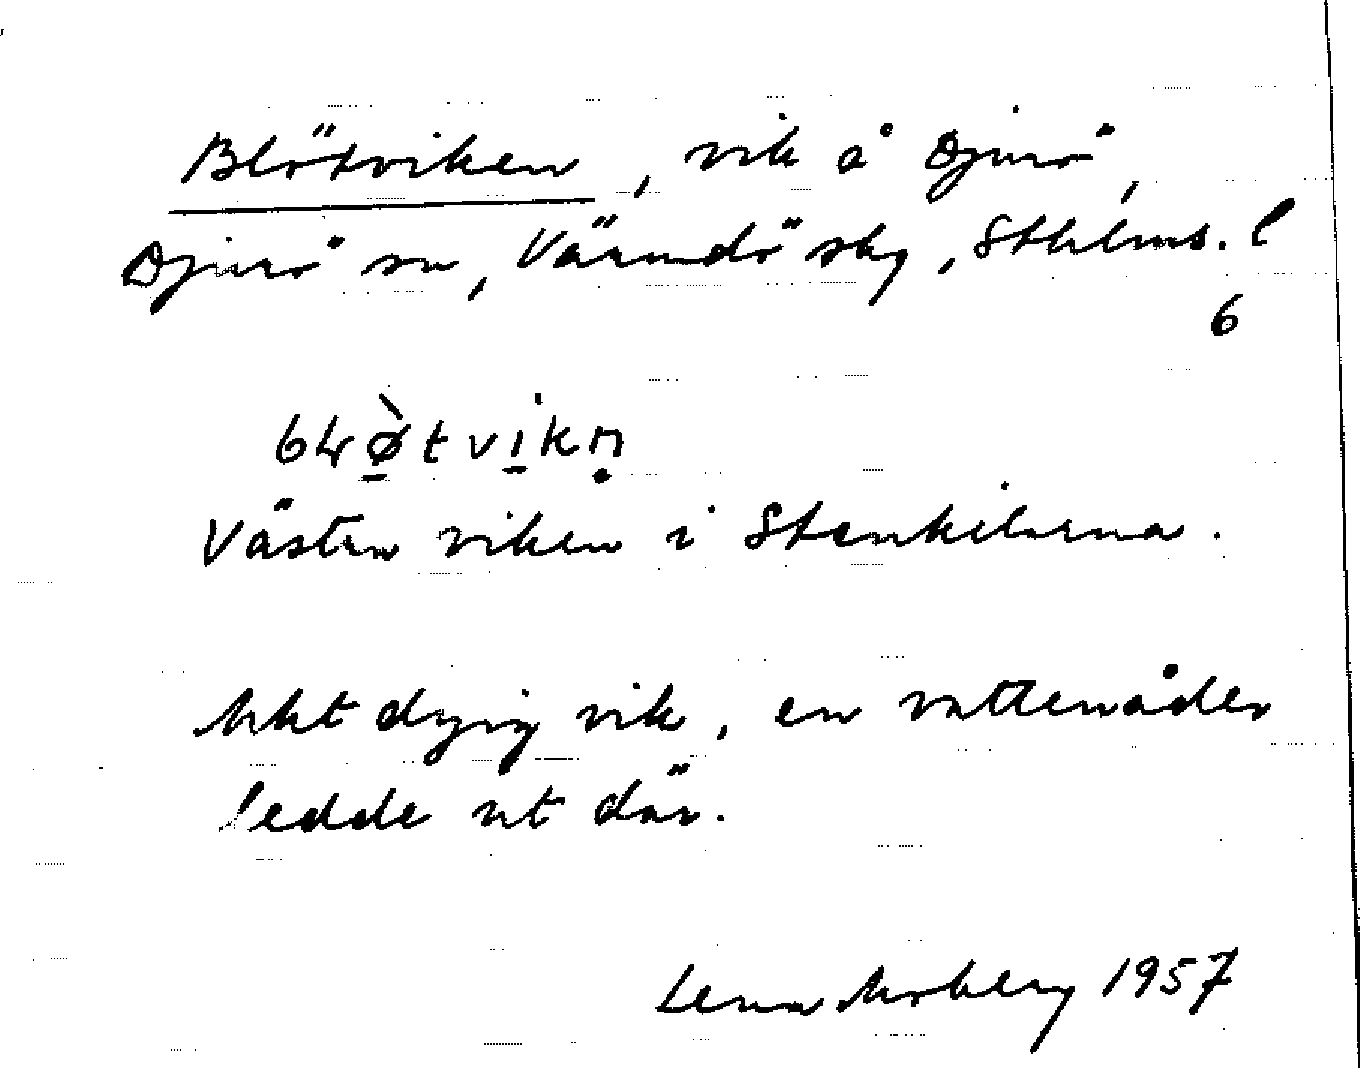 Blötviken, vik å Djurö,
Djurö sn, Värmdö sky, Sthlms. l
6
Västra viken i Stenkilarna.
Mkt dyig vik, en vattenåder
ledde ut där.
Lena Moberg 1957